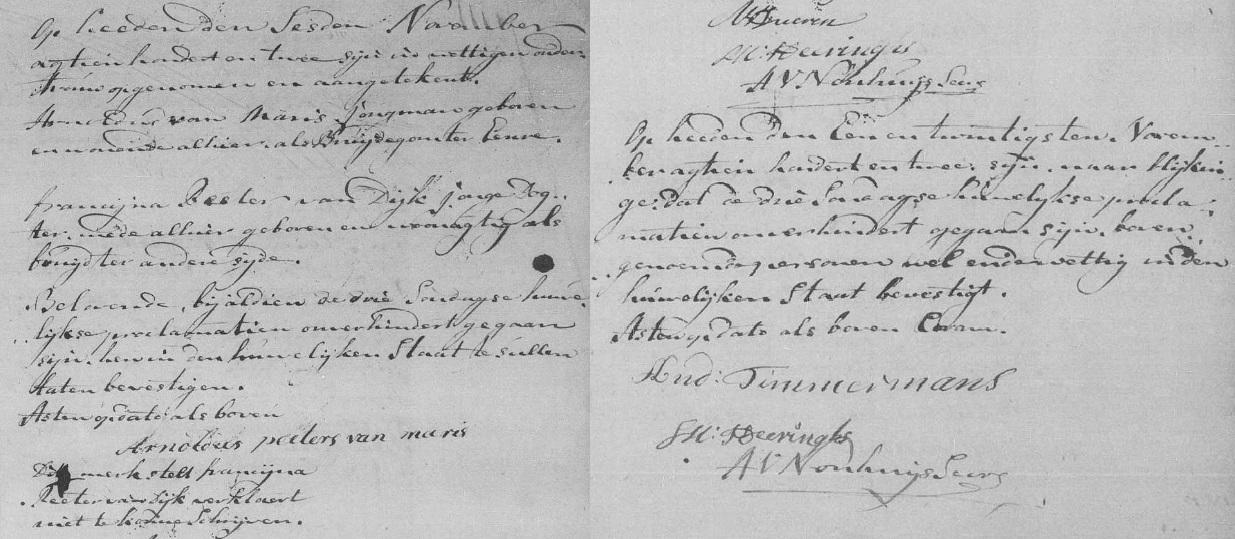 Op heeden den Sesden November
agtien hondert en twee sijn in wettigen onder
trouw opgenomen en aangetekent.
Arnoldus van Maris jongman geboren
en wonende alhier als Bruijdegom ter Eenre.
francijna Peeter van Dijk jonge Dog-
ter mede alhier geboren en woonagtig als
bruijd ter andere sijde.
Belovende, bij aldien de drie Sondagse huwe-
lijkse proclamatien onverhindert gegaan
sijn. hen in den huwelijken Staat te sullen
laten bevestigen.
Asten q. dato als boven
Arnoldus peeters van maris
Dit merk stelt francijna
Peeter van Dijk verklaert
niet te konne Schrijven.
A V Nouhuijs Secrs
Op heeden den Een en twintigsten. Novem-
ber agtien hondert en twee. sijn. naar blijkin-
ge. dat de drie Sondagse huwelijkse procla-
matien onverhindert gegaan sijn. boven
genoemde persoonen wel ende wettig in den
huwelijken Staat bevestigt.
Asten q. dato als boven Coram.
Hnd: Timmermans
A V Nouhuijs Secrs